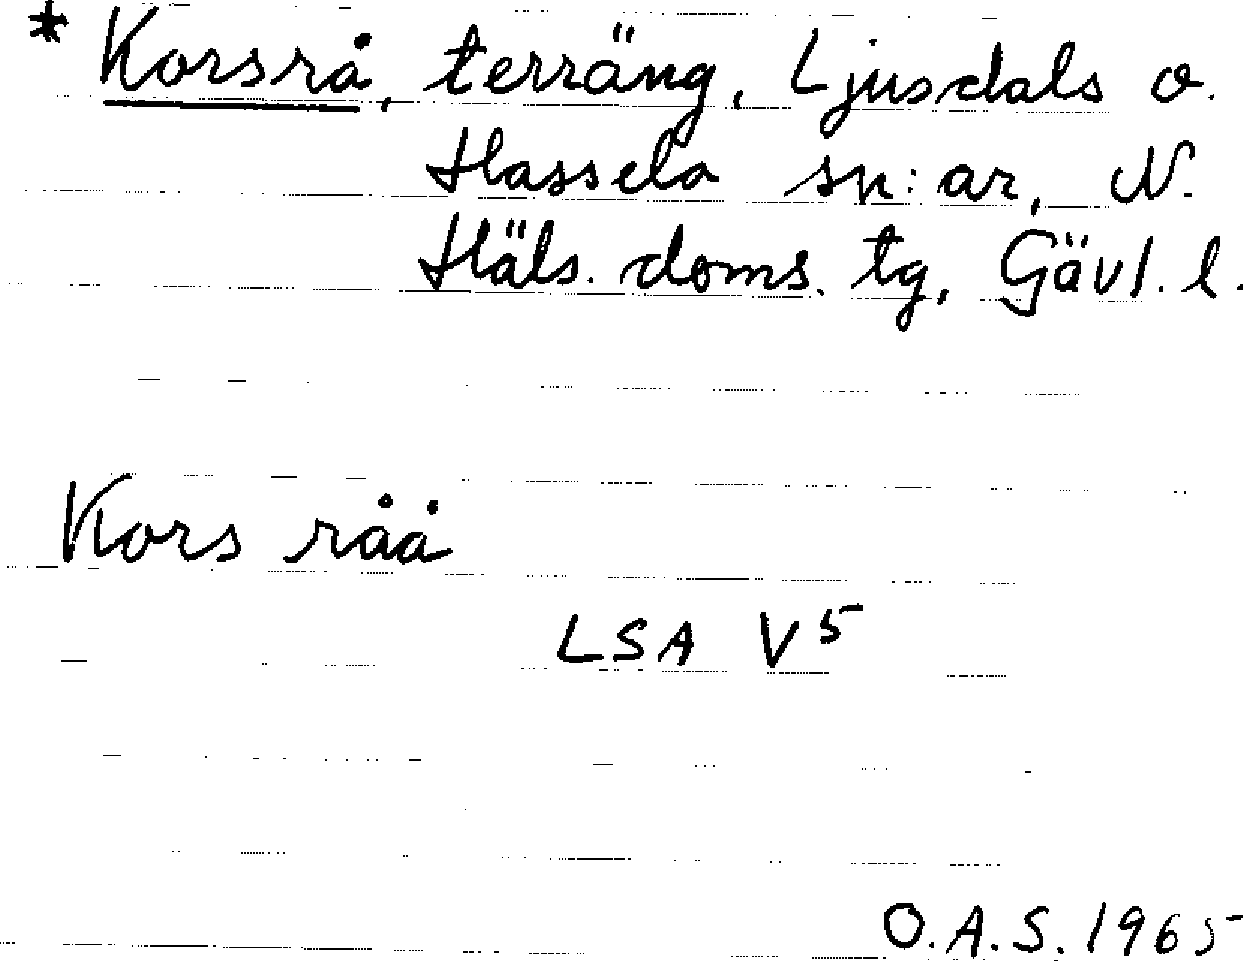 * Korsrå, terräng, Ljusdals o.
Hassela sn:ar, N.
Häls. doms. tg, Gävl. l.
Kors råå
LSA V5
O.A.S. 1965